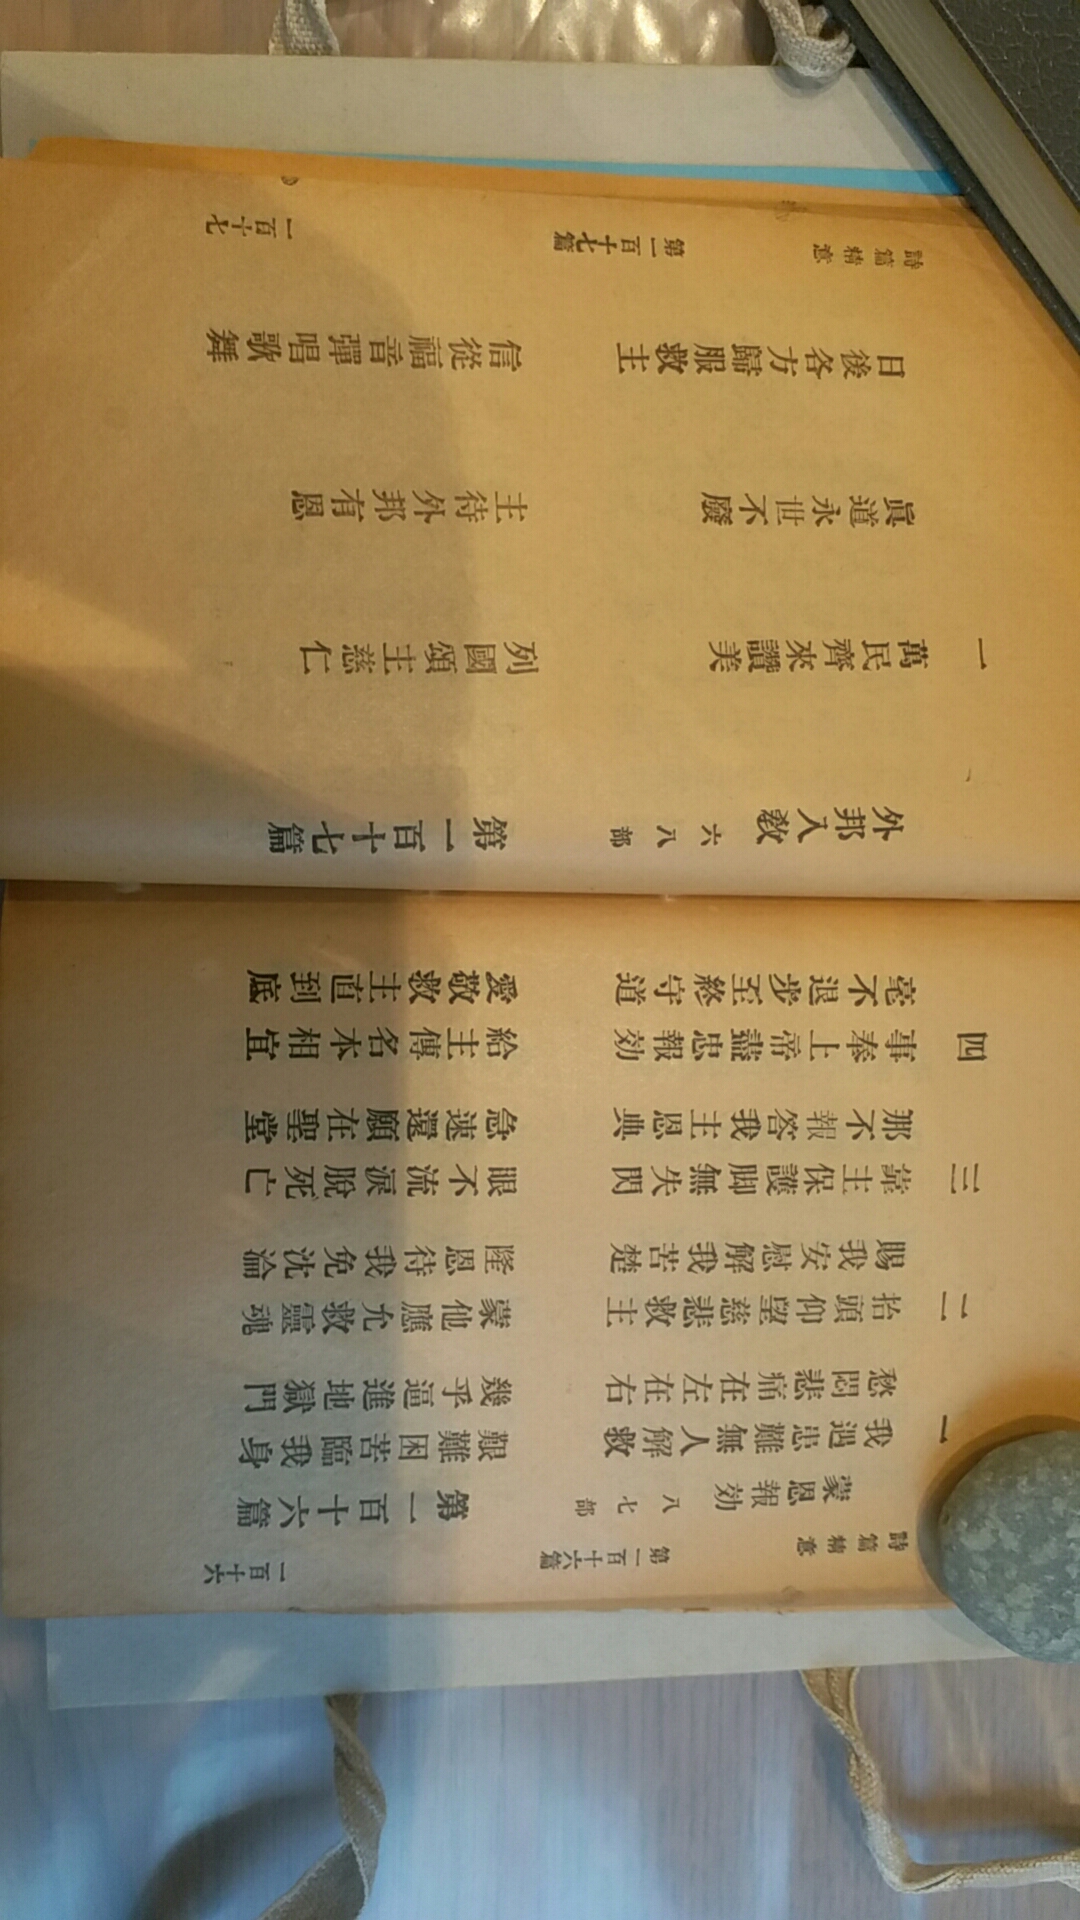 詩篇精意 第一百十六篇 一百十六
蒙恩報効 八七部 第一百十六篇
一 我遇患難無人解救 艱難困苦臨我身
愁悶悲痛在左在右 幾乎逼進地獄門
二 抬頭仰望慈悲救主 蒙他應允救靈魂
賜我安慰解我苦楚 隆恩待我免沈淪
三 靠主保護脚無失閃 眼不流淚脫死亡
那不報答我主恩典 急速還願在聖堂
四 事奉上帝盡忠報効 給主傳名本相宜
毫不退步至終守道 愛敬救主直到底
外邦入教 六八部 第一百十七篇
一 萬民齊來讚美 列國頌主慈仁
眞道永世不廢 主待外邦有恩
日後各方歸服救主 信從福音彈唱歌舞
詩篇精意 第一百十七篇 一百十七